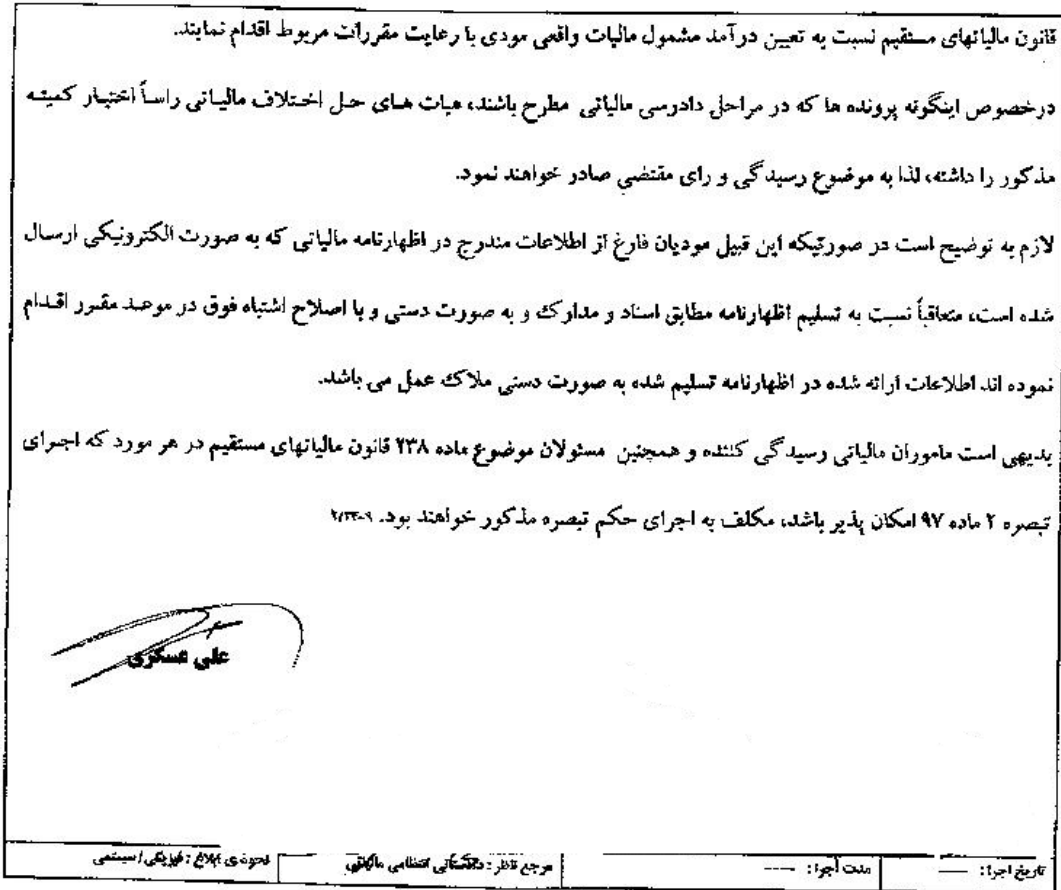 قانون مالیاتهای مستقیم نسبت به تعیین درآمد مشمول مالیات واقعی مودی با رعایت مقررات مربوط اقدام نمایند.
درخصوص اینگونه پرونده ها که در مراحل دادرسی مالیاتی مطرح باشند، هیات های حل اختلاف مالیاتی راساً اختیار کمیته
مذکور را داشته، لذا به موضوع رسیدگی و رای مقتضی صادر خواهند نمود.
لازم به توضیح است در صورتیکه این قبیل مودیان فارغ از اطلاعات مندرج در اظهارنامه مالیاتی که به صورت الکترونیکی ارسال
شده است، متعاقباً نسبت به تسلیم اظهارنامه مطابق اسناد و مدارک و به صورت دستی و یا اصلاح اشتباه فوق در موعد مقرر اقدام
نموده اند اطلاعات ارائه شده در اظهارنامه تسلیم شده به صورت دستی ملاک عمل می باشد.
بدیهی است ماموران مالیاتی رسیدگی کننده و همچنین مسئولان موضوع ماده ۲۳۸ قانون مالیاتهای مستقیم در هر مورد که اجرای
تبصره ۲ ماده ۹۷ امکان پذیر باشد، مکلف به اجرای حکم تبصره مذکور خواهند بود.
علی عسکری
تاریخ اجرا: —— مدت اجرا: ---- مرجع ناظر: دادستانی انتظامی مالیاتی نحوه ی ابلاغ: فیزیکی/سیستمی